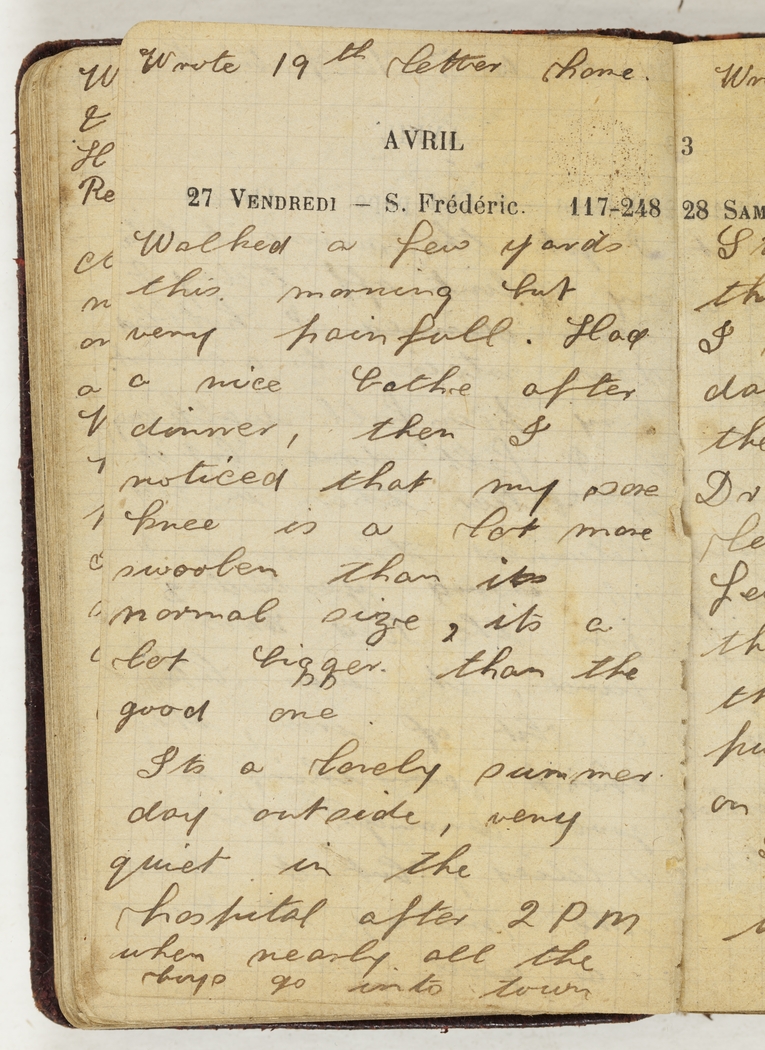 Wrote 19th letter home.
AVRIL
27 VENDREDI – S. Frédéric. 117-248
Walked a few yards
this. morning but
very painfull. Had
a nice bathe after
dinner, then I
noticed that my sore
knee is a lot more
swoolen than its
normal size, its a
lot bigger. than the
good one.
Its a lovely summer.
day outside, very
quiet in the
hospital after 2 P m
when nearly all the
boys go into town
W
&
H
Re
3
28 SAM
th
I
da
the
Dr
th
on